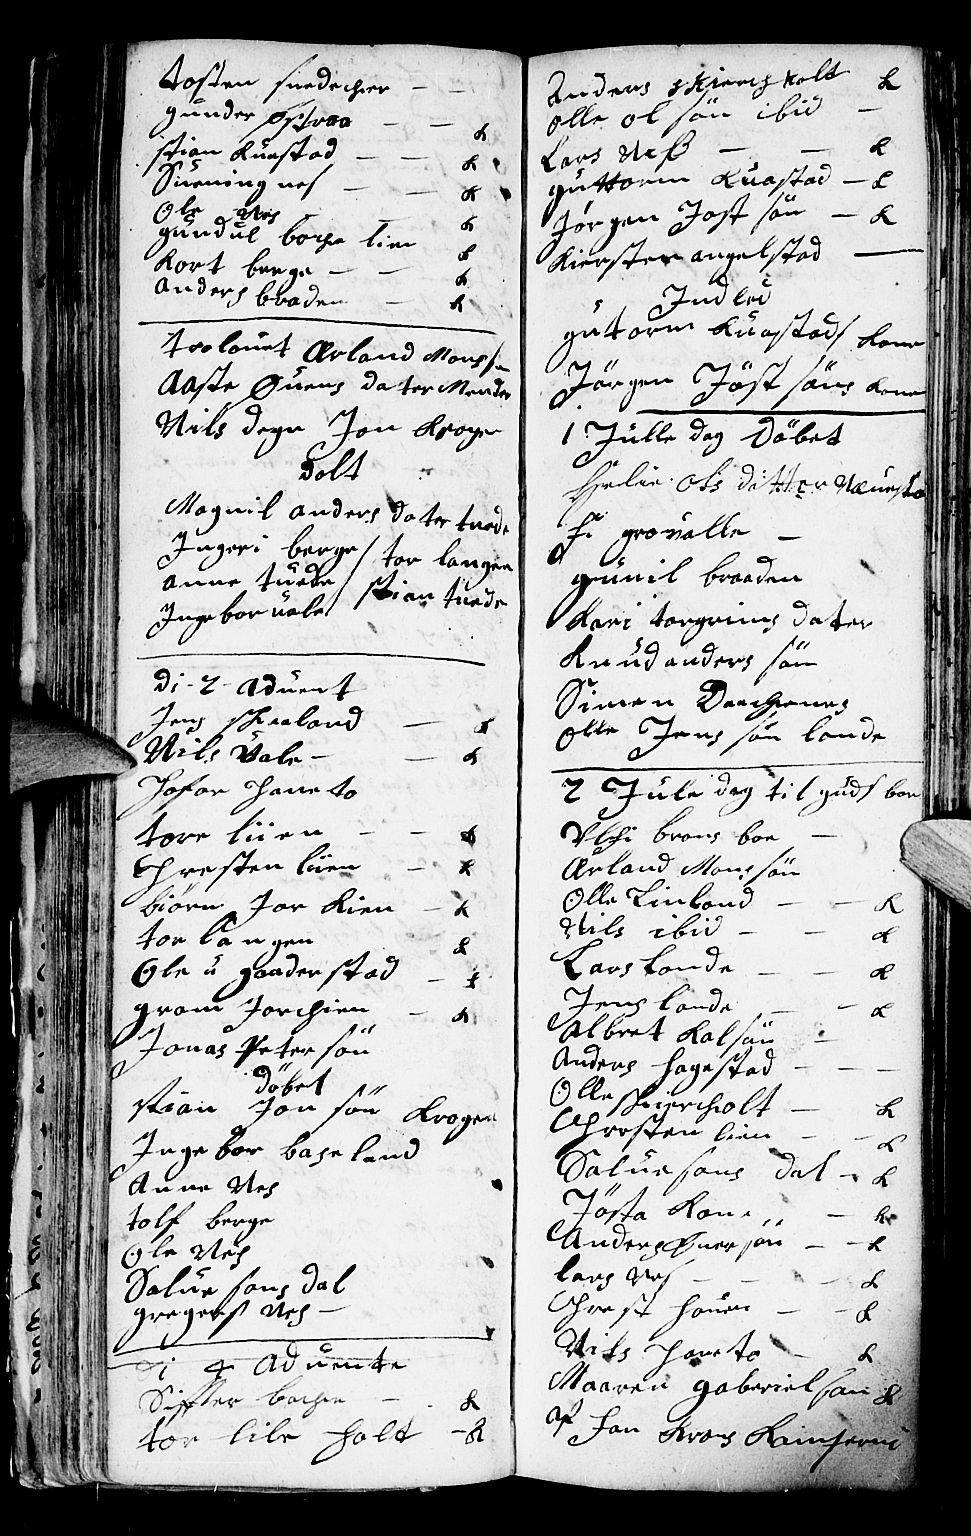 tosten suedchier - -
gunder østraa - -
stian Kuastad - - k
Suening nes - - k
Ole Nes - - k
gundul boche lien k
Kort berge - - k
Anders braden - k
trolouet Ærland Mons sø
Aaste Øuens dater Mender
Nils degn Jon Kroge
dolt
Magnil anders dater tuede
Jngeri berge / tor langen
anne tuede / stian tuede
Jngebor uale
Di - 2 - Aduent
Jens skaaland - k
Nils Vale - - k
Hofar haneto
tore liien - - k
Chresten liien - k
biörn Jor Kien - k
tor langen k
Ole u gaaderstad - k
gram Jorchien - k
Jonas Peter sön
döbet
stian Jon sön Krogen
Jngebor baseland
Anne Nes
tolf berge
Ole Nes
Salue sons dal
gregers Nes -
Di 4 Aduente
Siffver bochen - k
tor lile holt - k
Anders skierholt k
Olle ol sön ibid -
Lars Neß - - k
guttorm Kuastad - k
Jørgen Jost sön - k
Kiersten angelstad -
Jndled
gutorm Kuastads kone
Jörgen Jöst söns kone
1 Julle dag Döbet
Helie ols ditter Næuesta
Si grovalle -
gunil braaden
Kari torgrims dater
Knud anders sön
Simen Daachenes
Olle Jens sön lande
2 Jule dag til guds bor
Vlchi brons boe -
Ærland Mons sön
Olle Linland - - k
Nils ibid - - k
Lars Lande - - k
Jens lande - - k
Albret Kalsön -
Anders hagestad - - -
Olle skiercholt - k
Chresten lien - - k
Salue sons dal - k
Jösta Kone - k
Anders Juer sön - - k
lars Nes - - - k
Chrest houen - - k
Nils haneto - k
Maaren gabriel sön k
af Jan Krogs